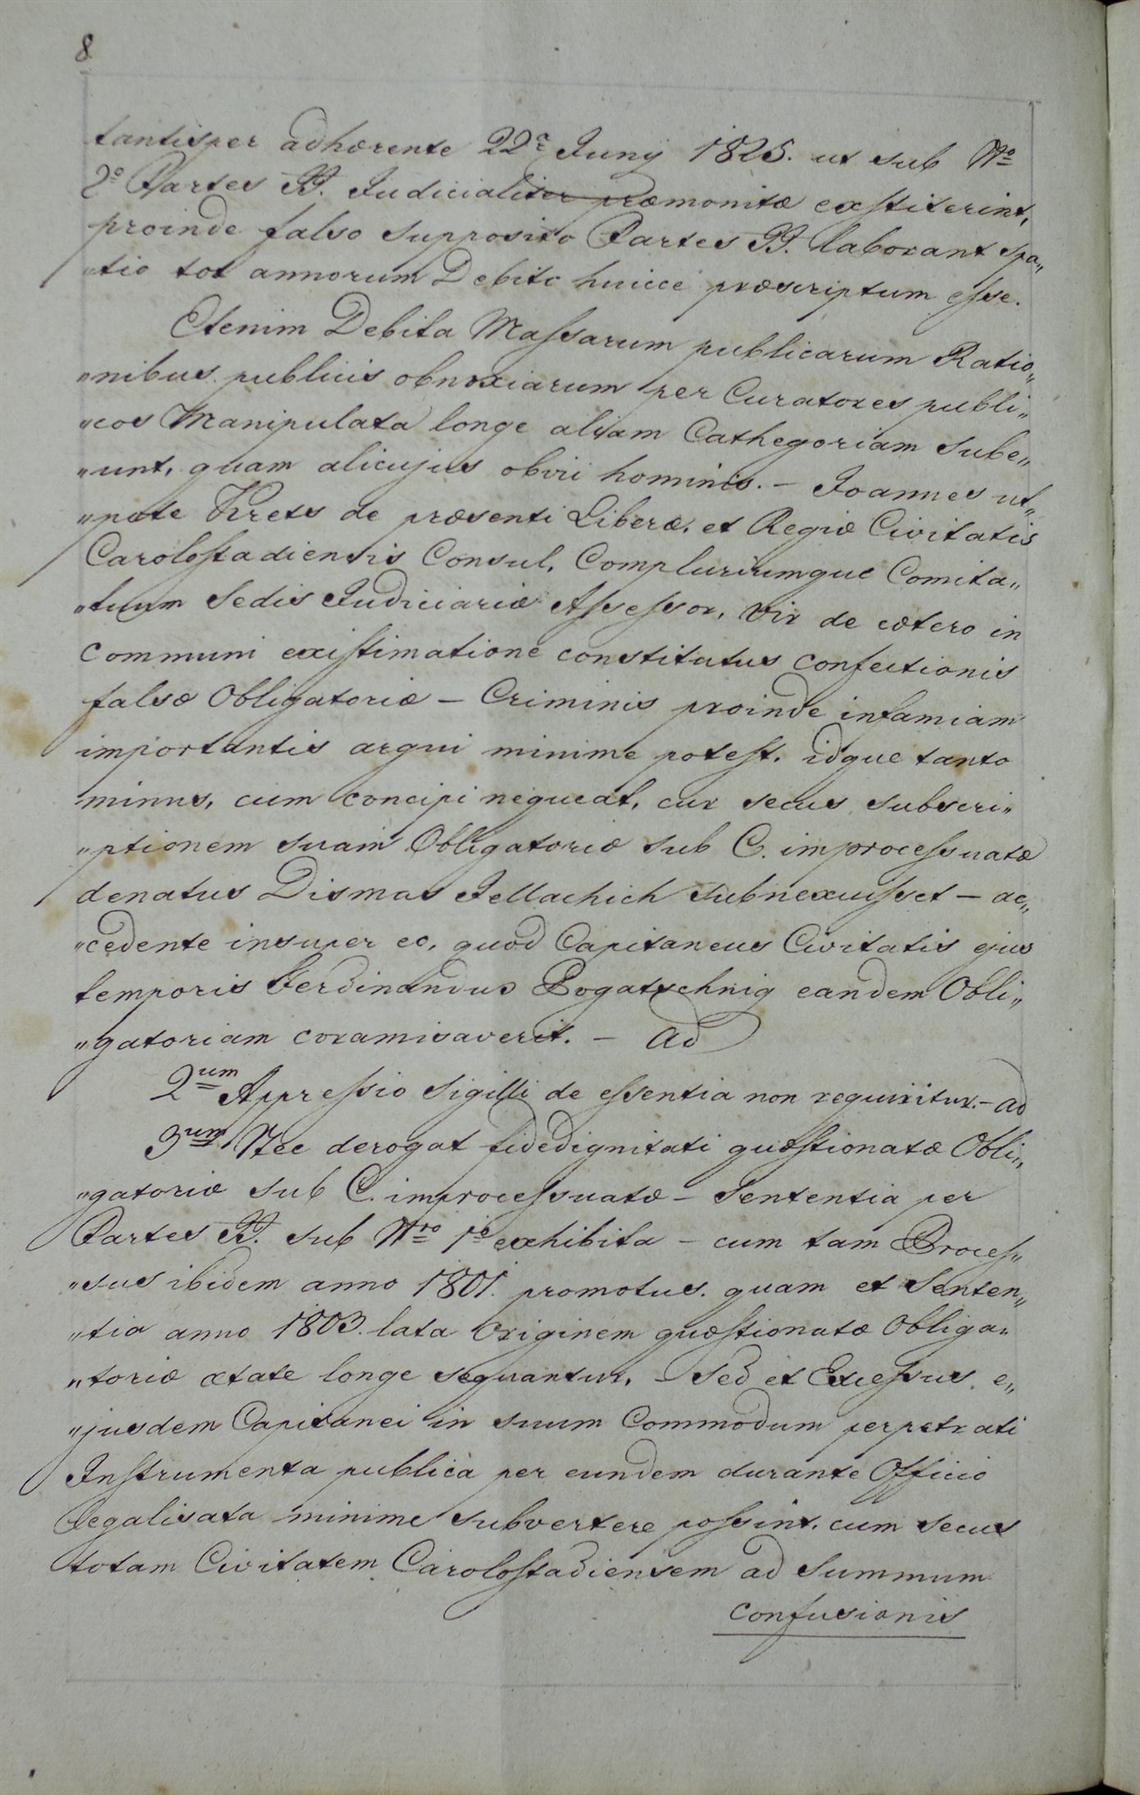 8
tantisper adhærente 22a Juny 1825. ut sub No
2o Partes II. Judicialiter præmonitæ exstiterint,
proinde falso supposito Partes II. laborant spa„
„tio tot annorum Debito huicce præscriptum esse.
Etenim Debita Massarum publicarum Ratio„
„nibus publicis obnoxiarum per Curatores publi„
„cos Manipulata longe aliam Cathegoriam sube„
„unt, quam alicujus obvii hominis. – Joannes ut„
„pote Krets de præsenti Liberæ, et Regiæ Civitatis
Carolostadiensis Consul, Compluriumque Comita„
„tuum Sedis Judiciariæ Assessor, Vir de cætero in
communi existimatione constitutus confectionis
falsæ Obligatoriæ – Criminis proinde infamiam
importantis argui minime potest, idque tanto
minus, cum concipi nequeat, cur secus subscri„
„ptionem suam Obligatoriæ sub C. improcessuatæ
denatus Dismas Jellachich subnexuisset – ac„
„cedente insuper eo, quod Capitaneus Civitatis ejus
temporis Ferdinandus Bogatschnig eandem Obli„
„gatoriam coramisaverit. – Ad
2um Appressio Sigilli de essentia non requiritur. – ad
3um Nec derogat fidedignitati quæstionatæ Obli„
„gatoriæ sub C. improcessuatæ – Sententia per
Partes II. sub Nro 1o exhibita – cum tam Proces„
„sus ibidem anno 1801. promotus, quam et Senten„
„tia anno 1803. lata Originem quæstionatæ Obliga„
„toriæ ætate longe sequantur, – Sed et Excessus e„
„jusdem Capitanei in suum Commodum perpetrati
Instrumenta publica per eundem durante Officio
legalisata minime subvertere possint, cum secus
totam Civitatem Carolostadiensem ad summum
confusionis